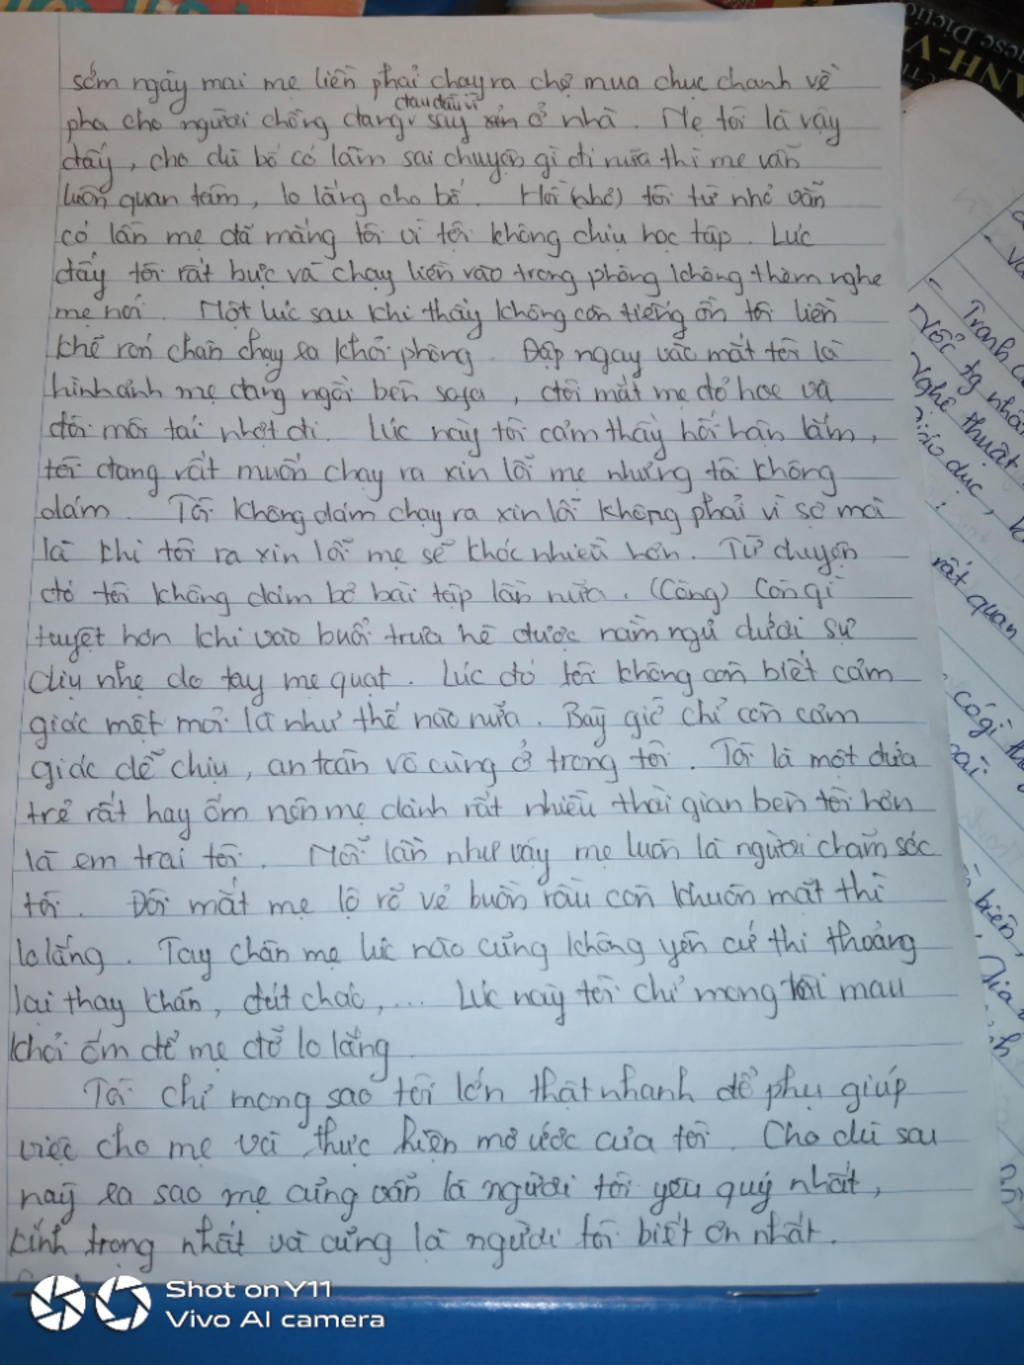 sớm ngày mai mẹ liền phải chạy ra chợ mua chục chanh về
đau đầu vì
pha cho người chồng đang say xỉn ở nhà. Mẹ tôi là vậy
đấy, cho dù bố có làm sai chuyện gì đi nữa thì mẹ vẫn
luôn quan tâm, lo lắng cho bố. Hồi (nhỏ) tôi từ nhỏ vẫn
có lần mẹ đã mắng tôi vì tôi không chịu học tập. Lúc
đấy tôi rất bực và chạy liền vào trong phòng không thèm nghe
mẹ nói. Một lúc sau khi thấy không còn tiếng ồn tôi liền
khẽ rón chân chạy ra khỏi phòng. Đập ngay vào mắt tôi là
hình ảnh mẹ đang ngồi bên sofa, đôi mắt mẹ đỏ hoe và
đôi môi tái nhợt đi. Lúc này tôi cảm thấy hối hận lắm,
tôi đang rất muốn chạy ra xin lỗi mẹ nhưng tôi không
dám. Tôi không dám chạy ra xin lỗi không phải vì sợ mà
là khi tôi ra xin lỗi mẹ sẽ khóc nhiều hơn. Từ chuyện
đó tôi không dám bỏ bài tập lần nữa. (Còng) Còn gì
tuyệt hơn khi vào buổi trưa hè được nằm ngủ dưới sự
dịu nhẹ do tay mẹ quạt. Lúc đó tôi không còn biết cảm
giác mệt mỏi là như thế nào nữa. Bây giờ chỉ còn cảm
giác dễ chịu, an toàn vô cùng ở trong tôi. Tôi là một đứa
trẻ rất hay ốm nên mẹ dành rất nhiều thời gian bên tôi hơn
là em trai tôi. Mỗi lần như vậy mẹ luôn là người chăm sóc
tôi. Đôi mắt mẹ lộ rõ vẻ buồn rầu còn khuôn mặt thì
lo lắng. Tay chân mẹ lúc nào cũng không yên cứ thi thoảng
lại thay khăn, đút cháo,... Lúc này tôi chỉ mong tôi mau
khỏi ốm để mẹ đỡ lo lắng
Tôi chỉ mong sao tôi lớn thật nhanh để phụ giúp
việc cho mẹ và thực hiện mơ ước của tôi. Cho dù sau
này ra sao mẹ cũng vẫn là người tôi yêu quý nhất,
kính trọng nhất và cũng là người tôi biết ơn nhất.
Tranh
Nốc tg nhân
Nghệ thuật
Giáo dục,
rất quan
có gì
biên,
Shot on Y11
Vivo AI camera